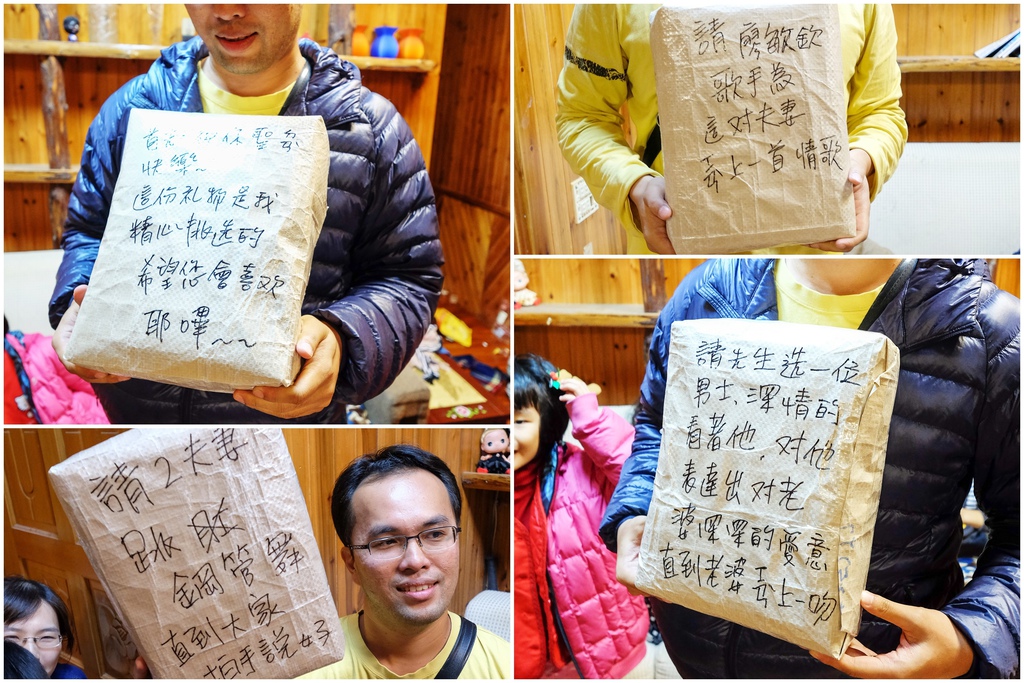 聖旦
快樂~
這份礼物是我
精心挑选的
希望您會喜欢
耶嗶~~
請廖敏欽
歌手為
這对夫妻
献上一首情歌
請2夫妻
跳
鋼管舞
直到大家
拍手說好
請先生选一位
男士、深情的
看著他,对他
表達出对老
婆深深的愛意
直到老婆献上一吻